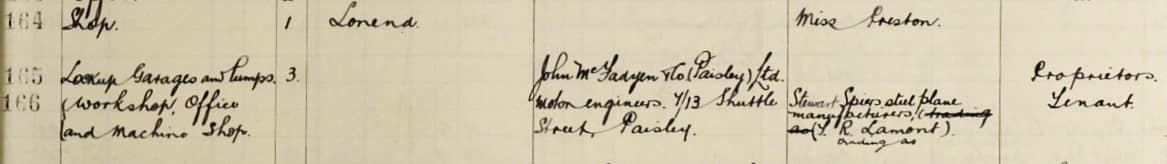 164 Shop. 1 Lonend. Miss Preston.
165 Lockup Garages and Pumps. 3. John McFadyen & Co (Paisley) Ltd. Proprietors.
166 Workshop, Office motor engineers. 7/13 Shuttle Stewart Spiers, steel plane Tenant.
and Machine Shop. Street, Paisley. manufacturers, (trading
as (T. R. Lamont).
trading as